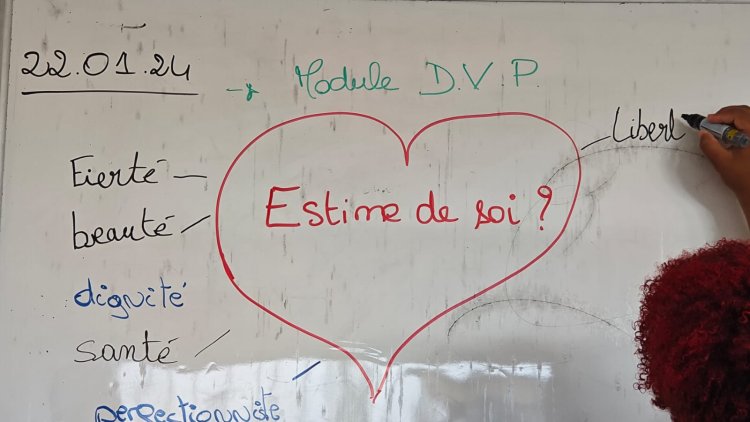 22.01.24
→ Module D.V.P.
Fierté
beauté
dignité
santé
perfectionniste
Estime de soi ?
Libert